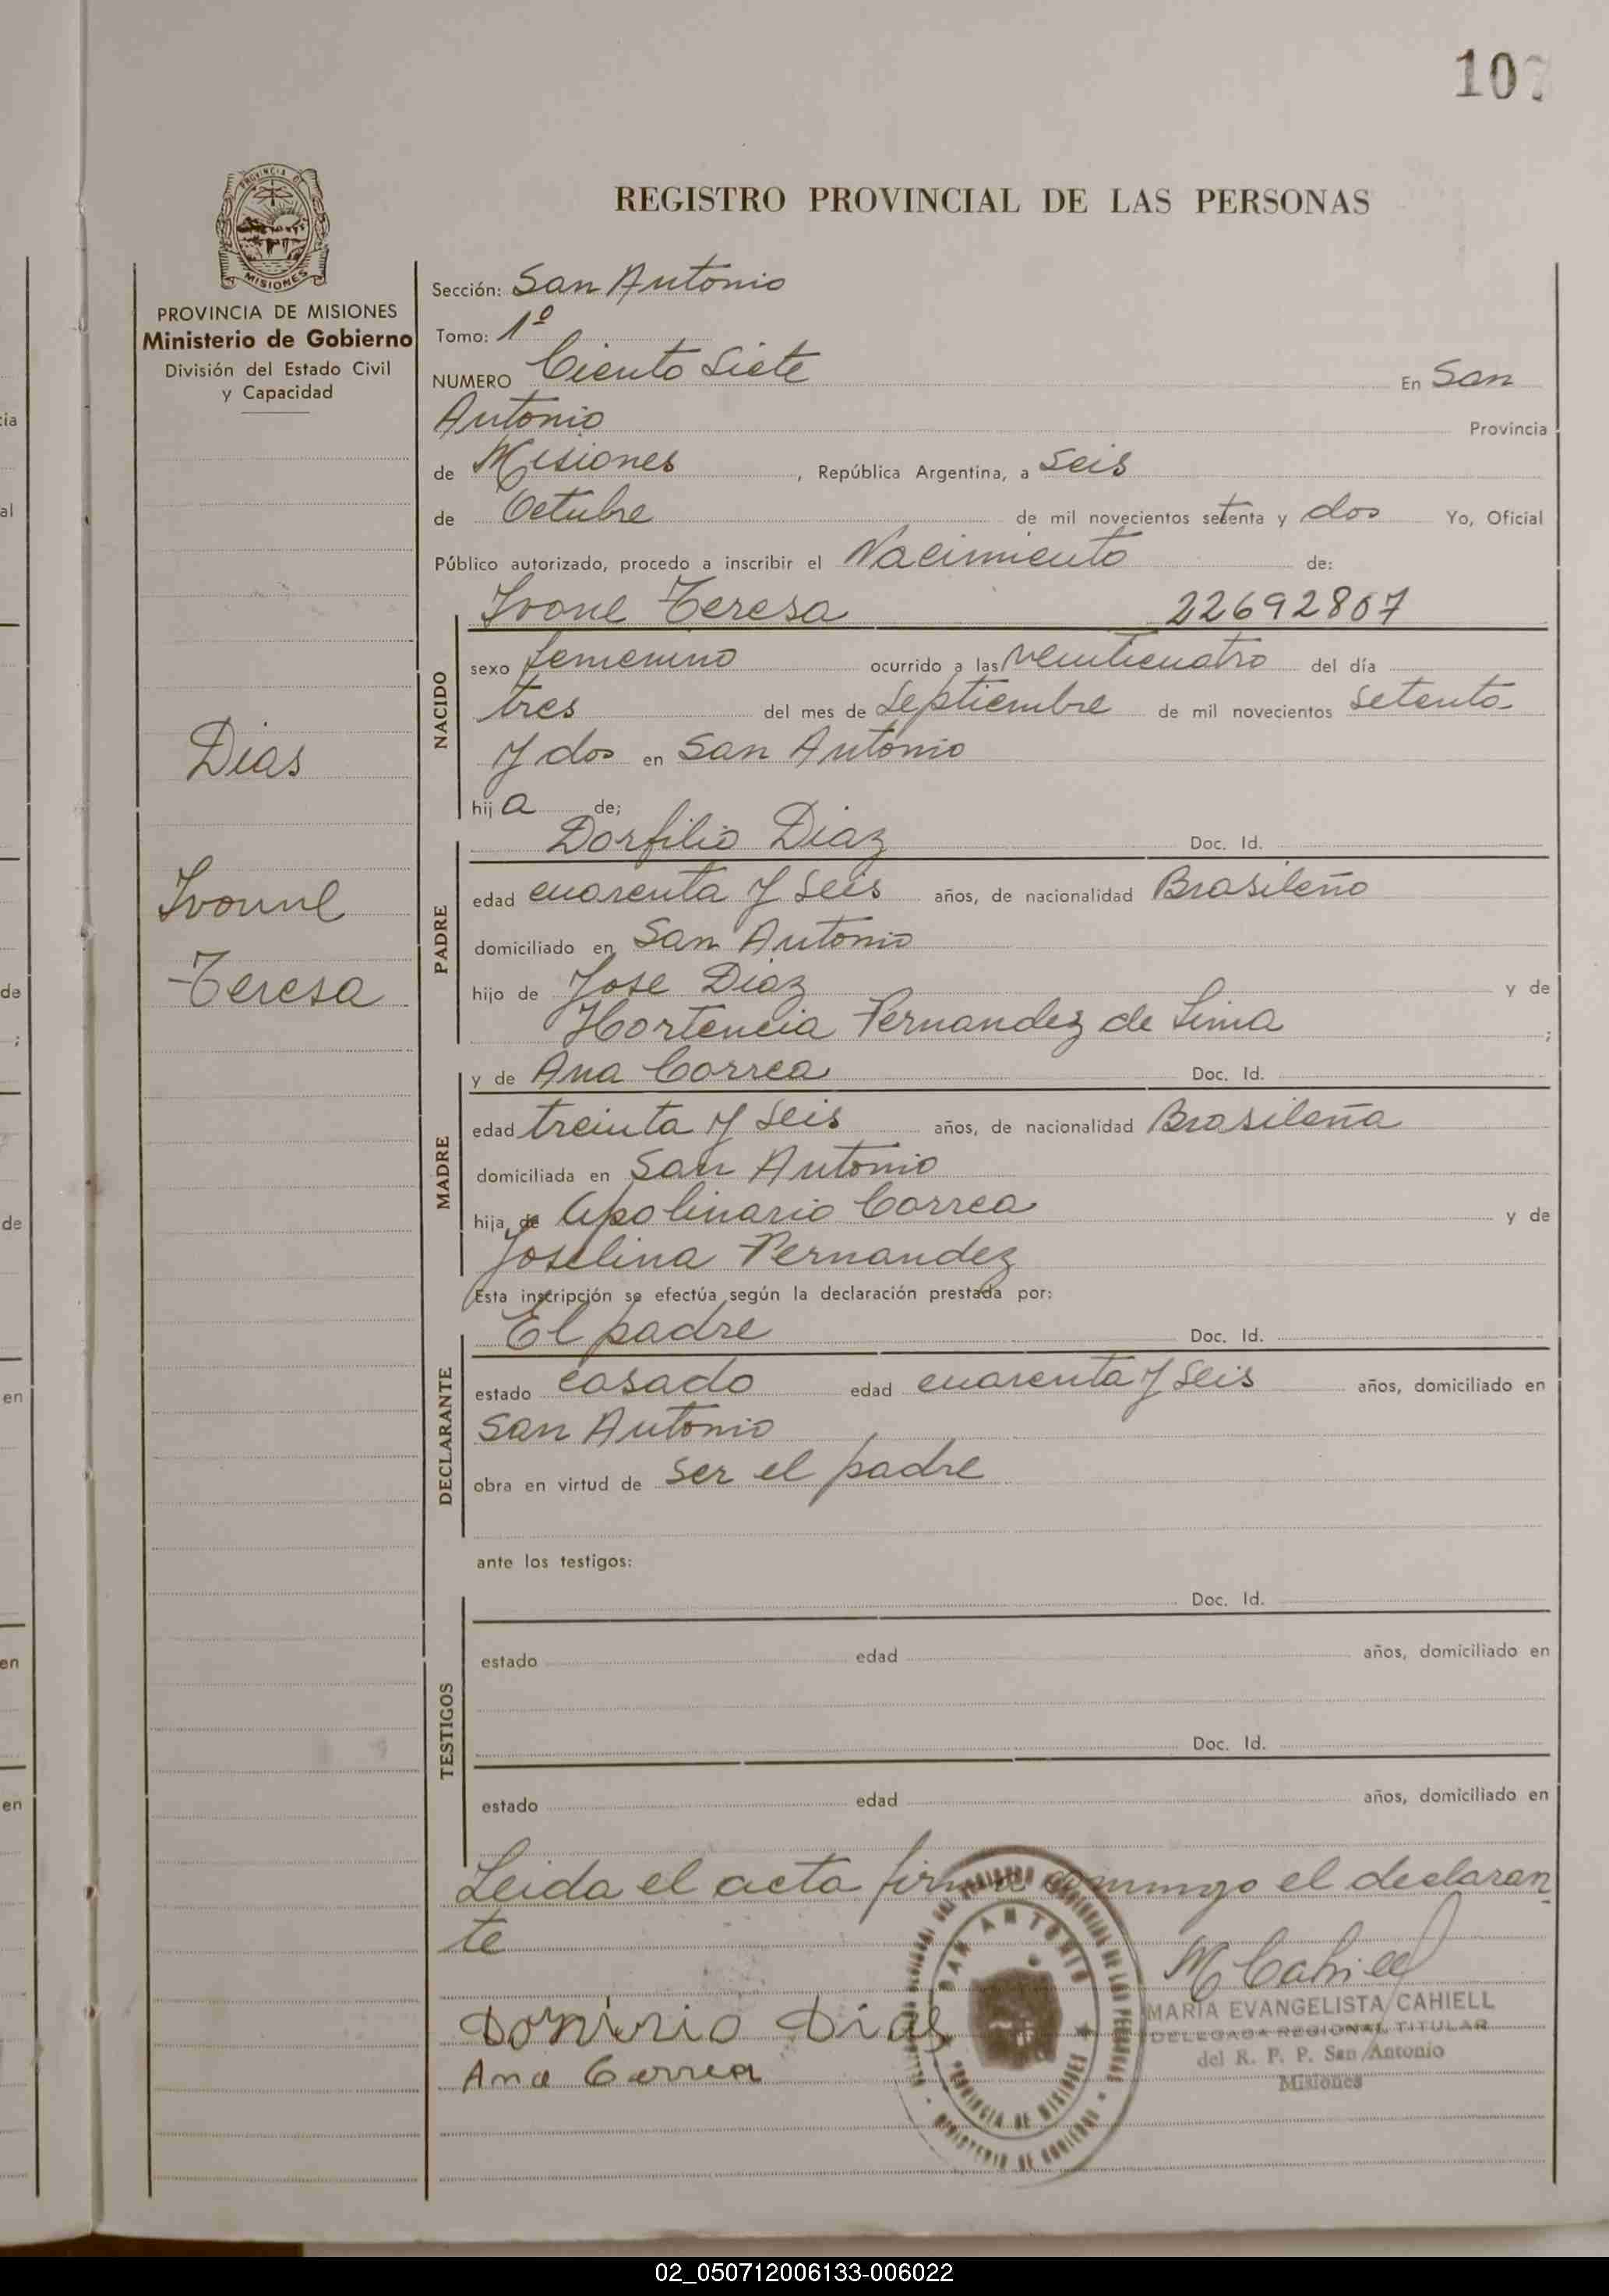 107
PROVINCIA DE MISIONES
Ministerio de Gobierno
División del Estado Civil
y Capacidad
Dias
Ivonne
Teresa
REGISTRO PROVINCIAL DE LAS PERSONAS
Sección: San Antonio
Tomo: 1º
NUMERO Ciento Siete En San
Antonio Provincia
de Misiones, República Argentina, a Seis
de Octubre de mil novecientos setenta y dos Yo, Oficial
Público autorizado, procedo a inscribir el Nacimiento de:
Ivone Teresa 22692867
NACIDO
sexo femenino ocurrido a las veinticuatro del día
tres del mes de Septiembre de mil novecientos setenta
y dos en San Antonio
hija de;
PADRE
Dorfilio Diaz Doc. Id.
edad cuarenta y seis años, de nacionalidad Brasileño
domiciliado en San Antonio
hijo de Jose Diaz y de
Hortencia Fernandez de Lima ;
MADRE
y de Ana Correa Doc. Id.
edad treinta y seis años, de nacionalidad Brasileña
domiciliada en San Antonio
hija de Apolinario Correa y de
Joselina Fernandez
Esta inscripción se efectúa según la declaración prestada por:
DECLARANTE
El padre Doc. Id.
estado casado edad cuarenta y seis años, domiciliado en
San Antonio
obra en virtud de ser el padre
ante los testigos:
TESTIGOS
Doc. Id.
estado edad años, domiciliado en
Doc. Id.
estado edad años, domiciliado en
Leida el acta firma conmigo el declaran
te
M Cahiell
MARIA EVANGELISTA CAHIELL
DELEGADA REGIONAL TITULAR
del R. P. P. San Antonio
Misiones
Dias
Ana Correa
SAN ANTONIO
PROVINCIA DE MISIONES
MINISTERIO DE GOBIERNO
02_050712006133-006022